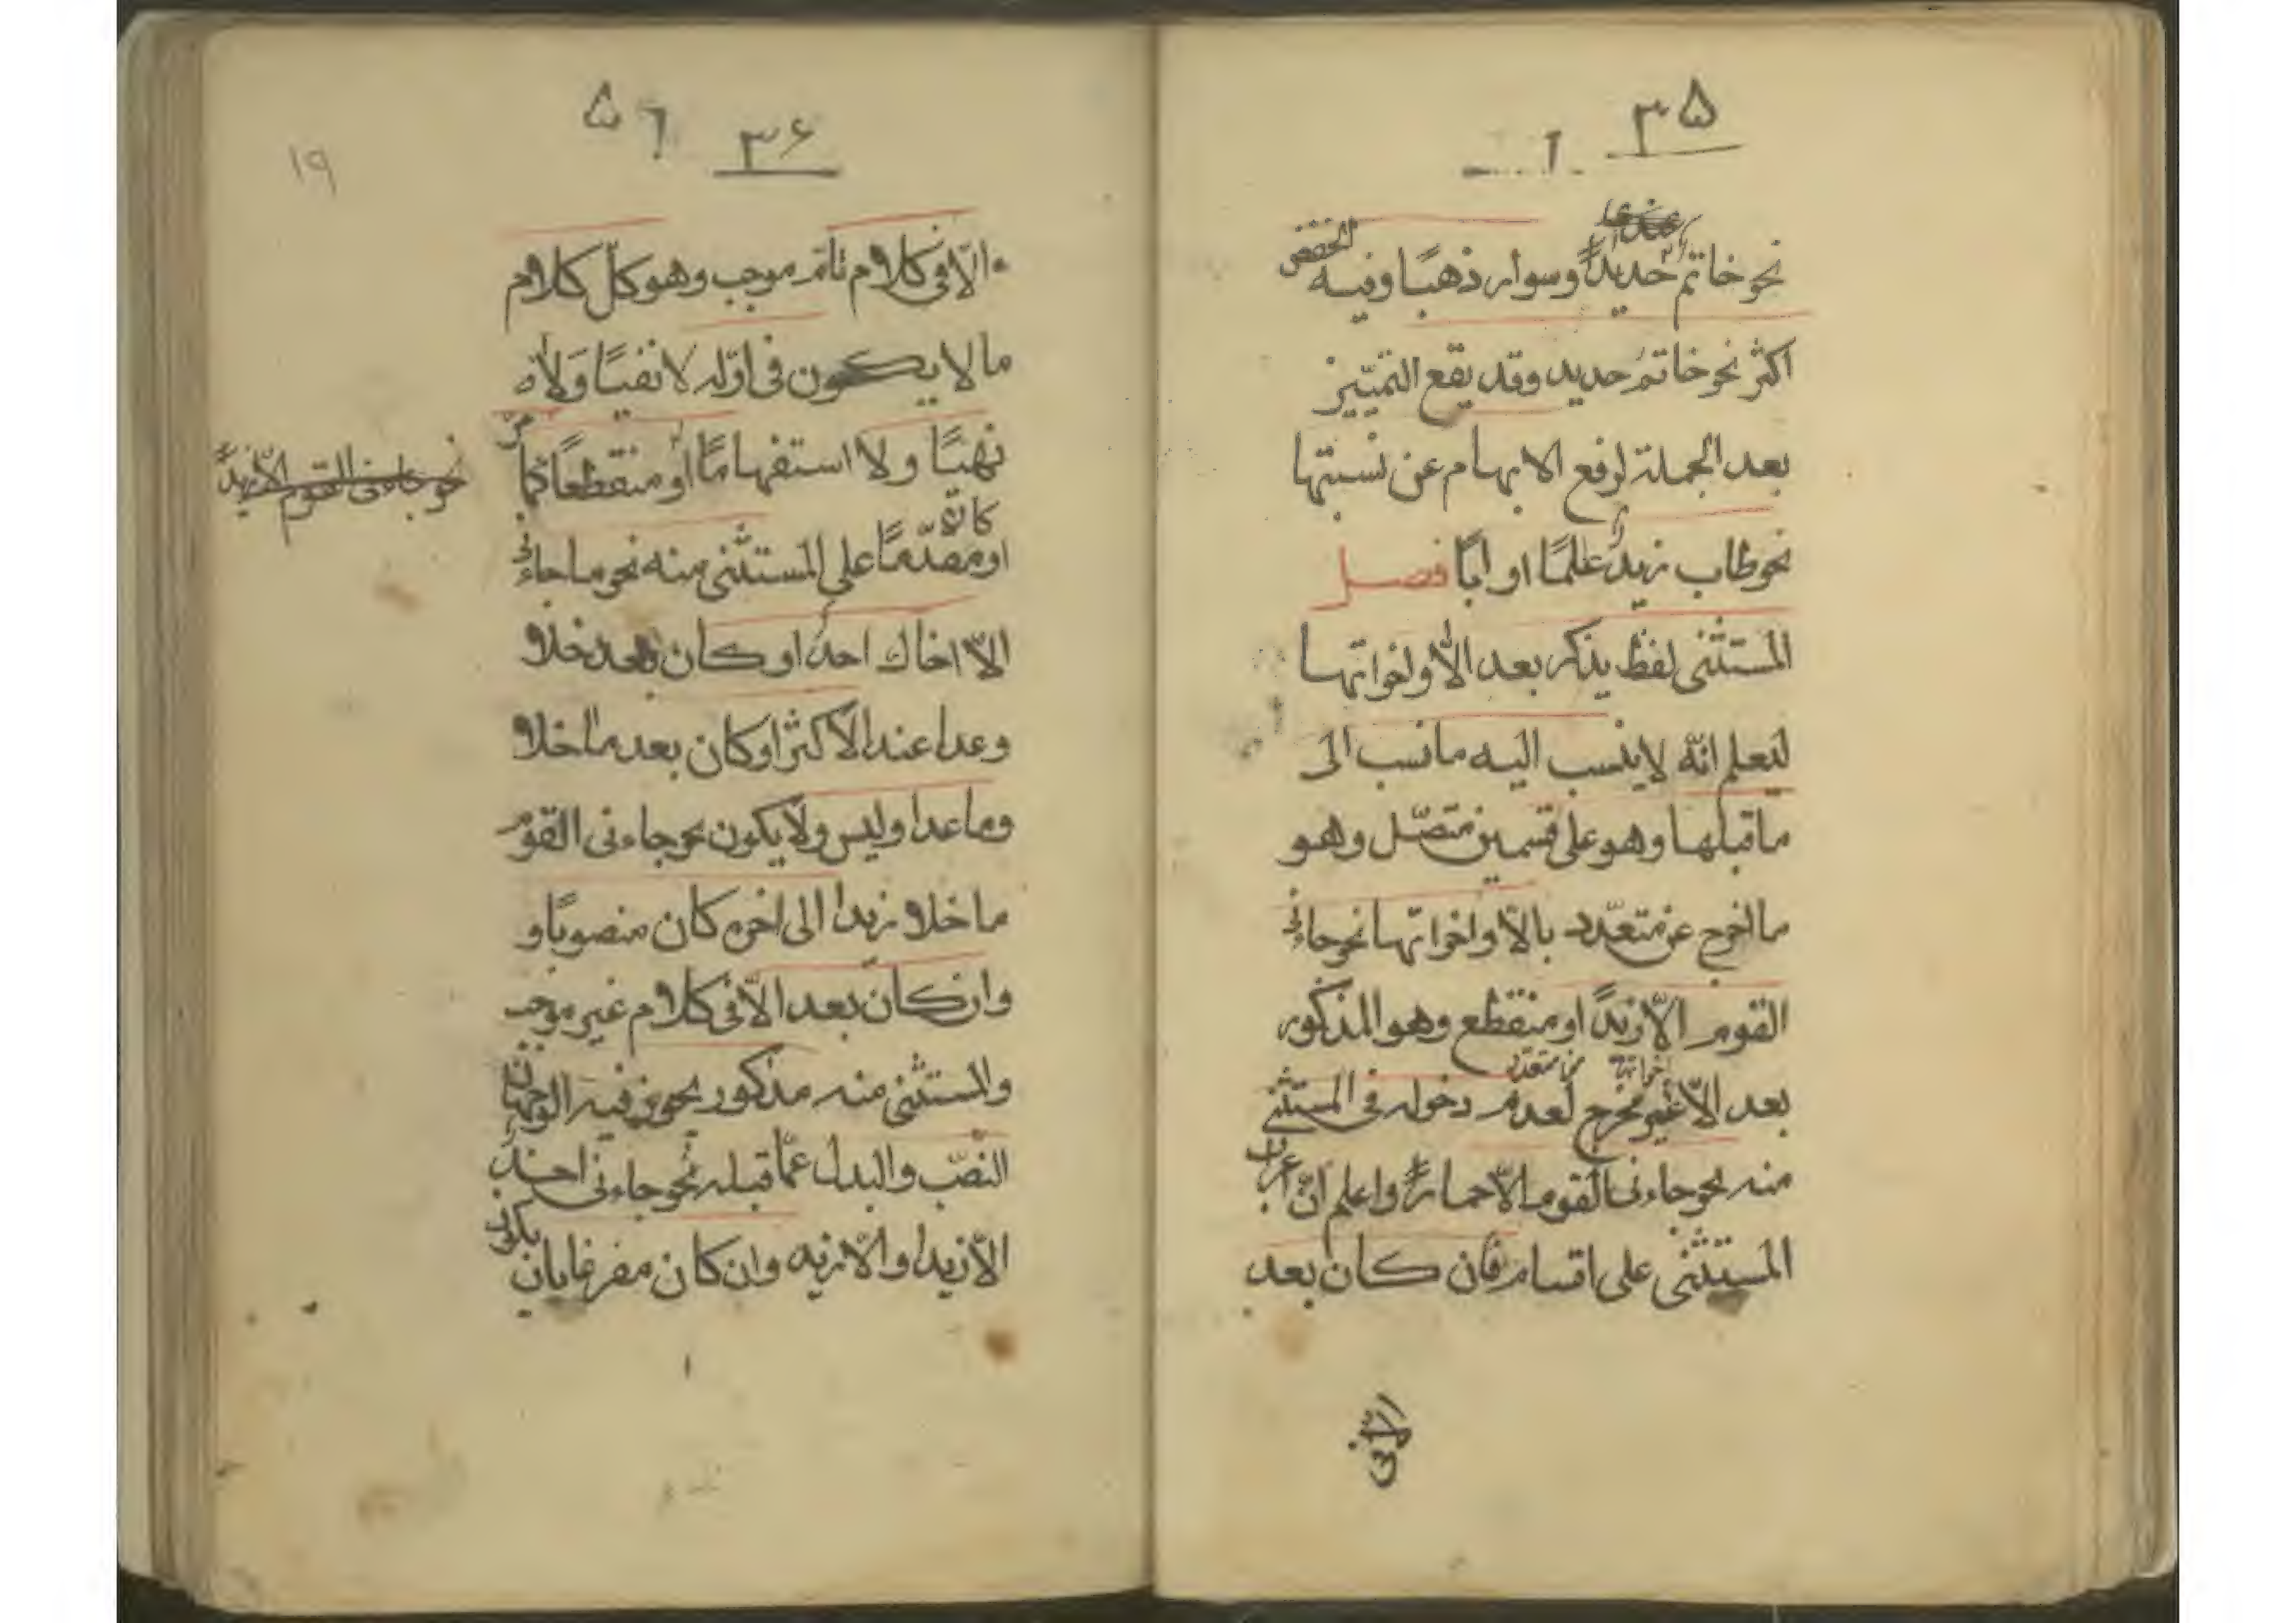 ۳۵
عندی
نحو خاتم حدیداً وسوار ذهبًا وفیه الخفض
اکثر نحو خاتم حدید وقد یقع التمییز
بعد الجملة لرفع الابهام عن نسبتها
نحو طاب زید علمًا او ابًا فصل
المستثنی لفظ یذکر بعد الّا واخواتها
لیعلم انّه لا ینسب الیه ما نسب الی
ما قبلها وهو علی قسمین متصّل وهو
ما اخرج عن متعدّد بالّا واخواتها نحو جاءنی
القوم الّا زیدًا او منقطع وهو المذکور
اخواتها من متعدد
بعد الّا غیر مخرج لعدم دخوله فی المستثنی
منه نحو جاءنی القوم الّا حمارًا واعلم انّ اعراب
المستثنی علی اقسام فان کان بعد
الّا فی
۵۶ ۳۶
۱۹
الّا فی کلام تامّ موجب وهو کلّ کلام
ما لا یکون فی اوّله لا نفیًا ولا
نهیًا ولا استفهامًا او منقطعًا کما مرّ
نحو جاءنی القوم الّا زیدًا
او مقدّمًا علی المستثنی منه نحو ما جاءنی
الّا اخاك احد او کان بعد خلا
وعدا عند الاکثر او کان بعد ما خلا
وما عدا ولیس ولا یکون نحو جاءنی القوم
ما خلا زیدا الی اخره کان منصوبًا و
وان کان بعد الّا فی کلام غیر موجب
والمستثنی منه مذکور یجوز فیه الوجهان
النصّب والبدل عمّا قبله نحو جاءنی احد
الّا زیدا والّا زید وان کان مفرغا بان یکون